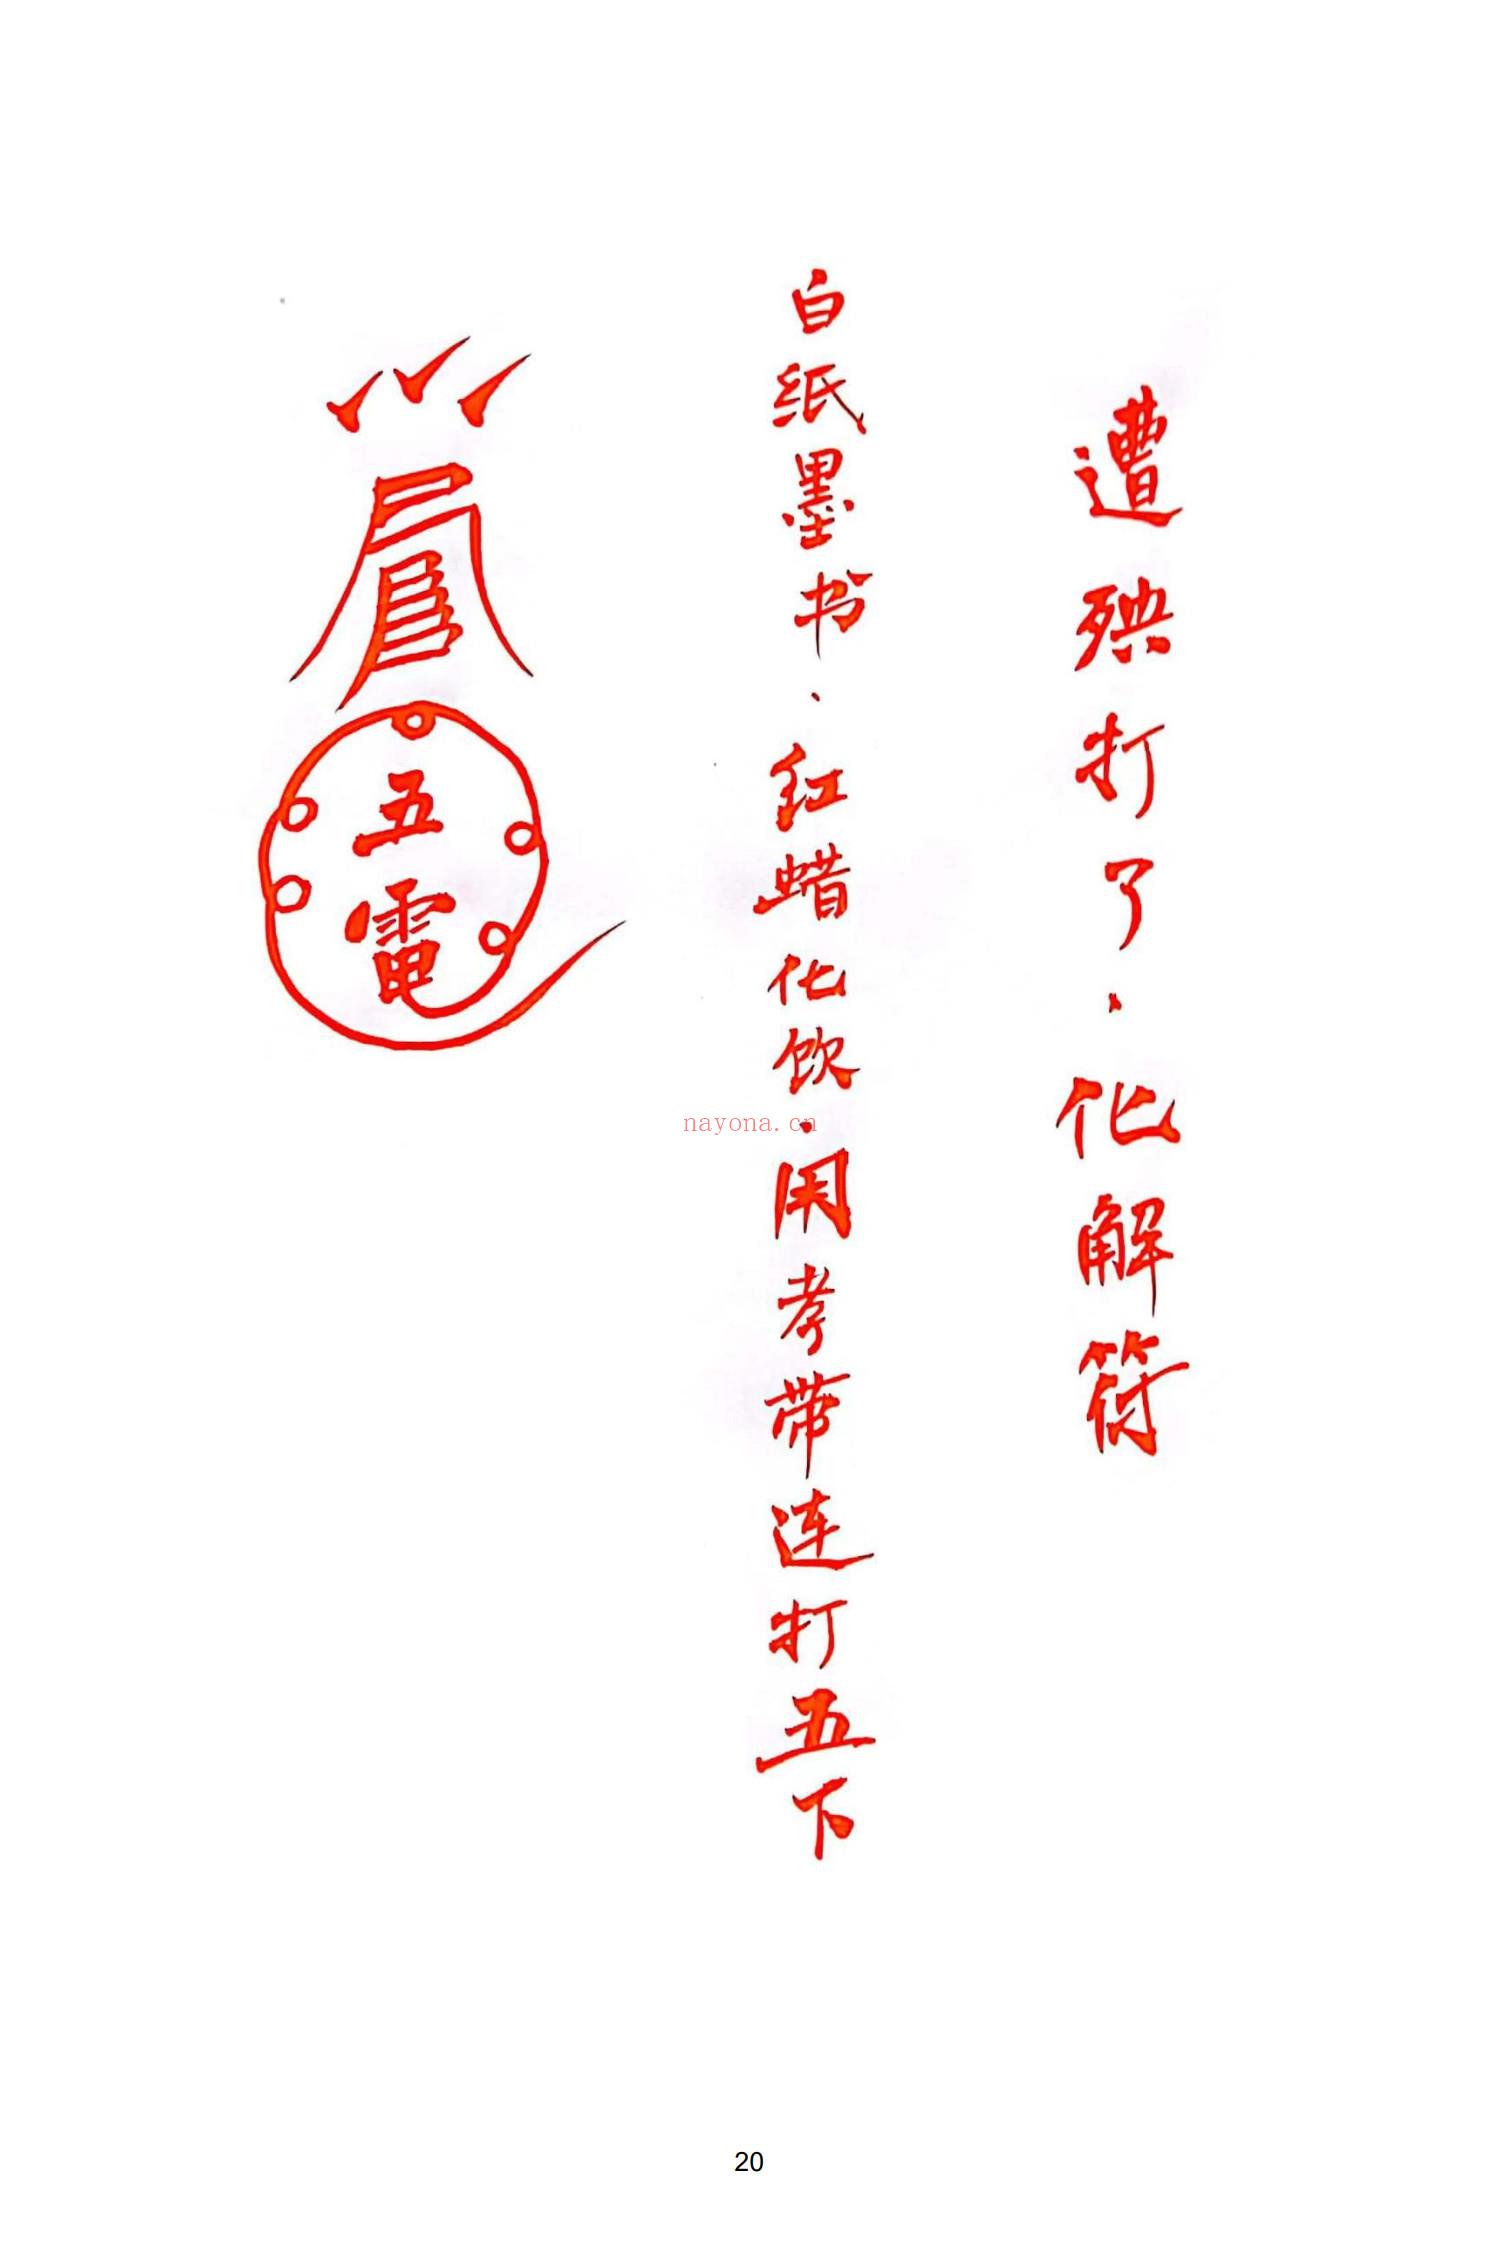 遭殃打了．化解符
白纸墨书．红蜡化饮．用孝带连打五下
五
電
nayona.cn
20